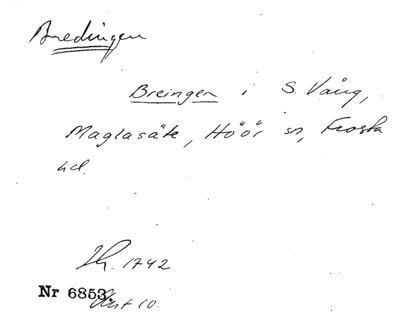 Bredingen
Breingen i S. Vång,
Maglasäte, Höör sn, Frosta
hd.
Sk. 1742
Nr 6853.
Akt 10.